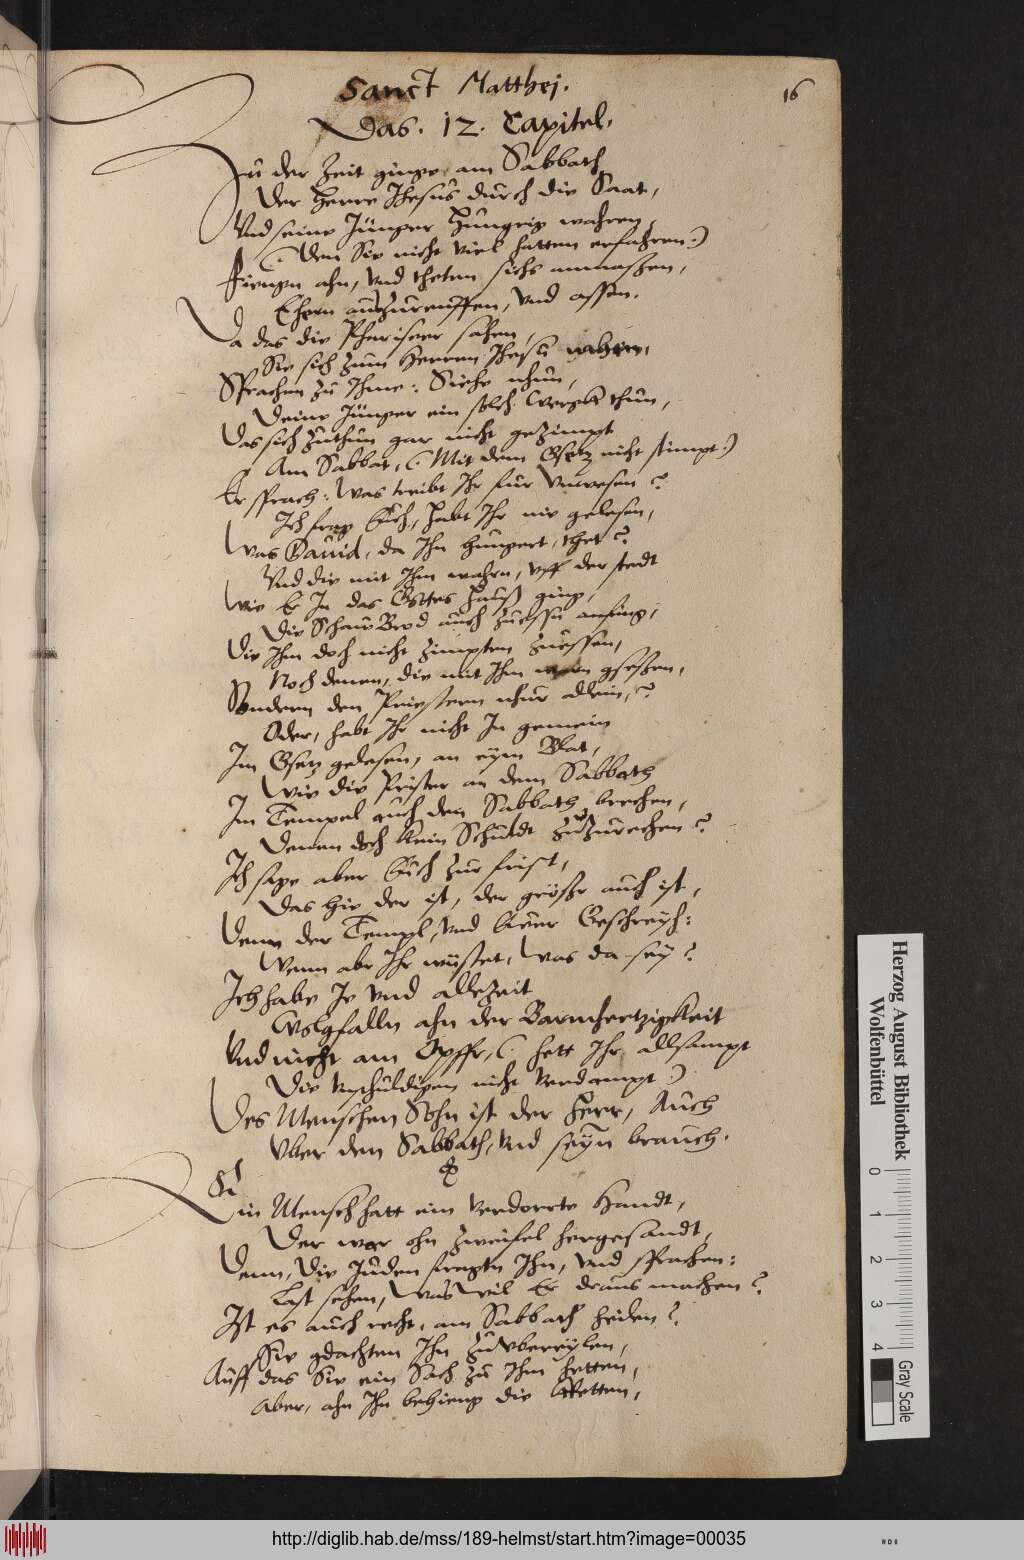 Sanct Matthej.
16
Das. 12. Capitel.
Zu der Zeit ginge am Sabbath
Der Herre Jhesus durch die Saat,
Vnd seine Jünger Hungrig wahren,
(Den Sie nicht viel hatten erfahren:)
Fiengn ahn, vnd theten sichs anmaßen,
Ehern auszureuffen, vnd assen.
Da das die Phariseer sahen,
Sie sich zum Herren Jhesu nahen,
Sprachen zu Ihme: Siehe nhun,
Deine Jünger ein solch thun,
Das sich zuthun gar nicht gezimpt
Am Sabbat, (Mit dem Gsetz nicht stimpt:)
Er sprach: Was treibt Ihr fur vnwesen?
Ich frag Euch, habt Ihr nie gelesen,
Was Dauid, da Ihn hungert, thet?
Vnd die mit Ihm wahrn, vff der stedt
Wie Er In das Gottes Hauß ging,
Die Schaw Brod auch zuessn anfing,
Die Ihm doch nicht zimpten zuessen,
Noch denen, die mit Ihm warn gseßen,
Sondern den Priestern nhur allein,?
Oder, habt Ihr nicht In gemein
Im Gsetz gelesen, an eym Blat,
Wie die Prister an dem Sabbath
Im Tempel auch den Sabbath brechen,
Denen doch kein Schuldt zuzurechen?
Ich sage aber Euch zur frist,
Das hie der ist, der größer auch ist,
Denn der Templ, vnd Ewer Geschreyh:
Wenn abr Ihr wüstet, Was da sey?
Ich habe Je vnd allezeit
Wolgfalln ahn der Barmhertzigkeit
Vnd nicht am Opffr, (hett Ihr allsampt
Die vnschuldigen nicht verdampt)
Des Menschen Sohn ist der Herr, Auch
Vber den Sabbath, vnd seyn brauch.
Ein Mensch hatt ein verdorrte Handt,
Der war ohn zweifel hergesandt,
Denn, Die Juden fragtn Ihn, vnd sprachen:
Last sehen, Was wil Er draus machen?
Ist es auch recht, am Sabbath heilen?
Sie gdachten Ihn zuvbereylen,
Auff das Sie ein Sach zu Ihm hetten,
Aber, ahn Ihn behieng die Kletten,
Herzog August Bibliothek
Wolfenbüttel
0 1 2 3 4
Gray Scale
http://diglib.hab.de/mss/189-helmst/start.htm?image=00035